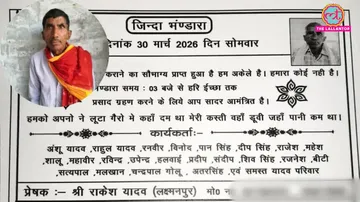 THE LALLANTOP
जिन्दा भण्डारा
दिनांक 30 मार्च 2026 दिन सोमवार
कराने का सौभाग्य प्राप्त हुआ है हम अकेले है। हमारा कोई नही है।
भण्डारा समय : 03 बजे से हरि ईच्छा तक
प्रसाद ग्रहण करने के लिए आप सादर आमंत्रित है।
हमको अपनो ने लूटा गैरो मे कहाँ दम था मेरी कस्ती वहाँ डूबी जहाँ पानी कम था।
कार्यकर्ताः-
अंशू यादव, राहुल यादव, रनवीर, विनोद, पान सिंह, दीप सिंह, राजेश, महेश,
शालू, महावीर, रविन्द्र, उपेन्द्र, हलवाई, प्रदीप, संदीप, शिव सिंह, रजनेश, बीटी
सत्यपाल, मलखान, चन्द्रपाल गोलू, अतरसिंह, एवं समस्त यादव परिवार
प्रेषक:- श्री राकेश यादव (लक्ष्मनपुर) मो0